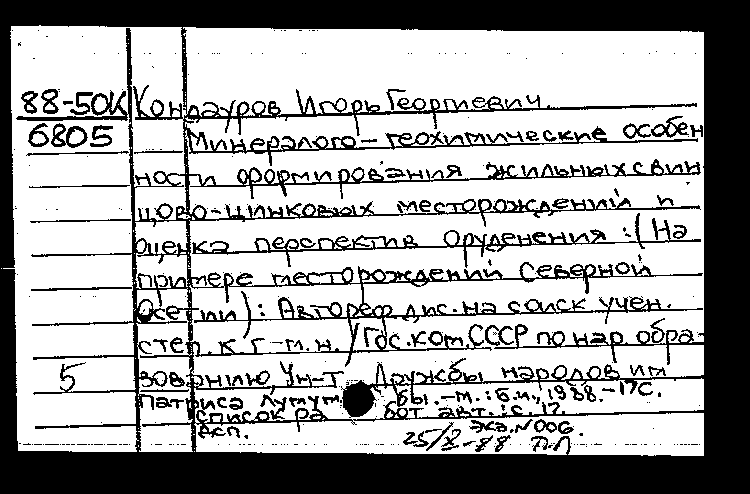 88-50К Кондауров, Игорь Георгиевич.
6805 Минералого-геохимические особен
ности формирования жильных свин
цово-цинковых месторождений и
оценка перспектив оруденения :(На
примере месторождений Северной
Осетии): Автореф. дис. на соиск учен.
степ. к. г-м.н. /Гос. ком. СССР по нар. обра-
5 зованию, Ун-т Дружбы народов им
Патриса Лумум бы. -М. : Б.и., 1988. -17с.
список ра бот авт. : с. 17.
Экз. N 006.
25/X-88